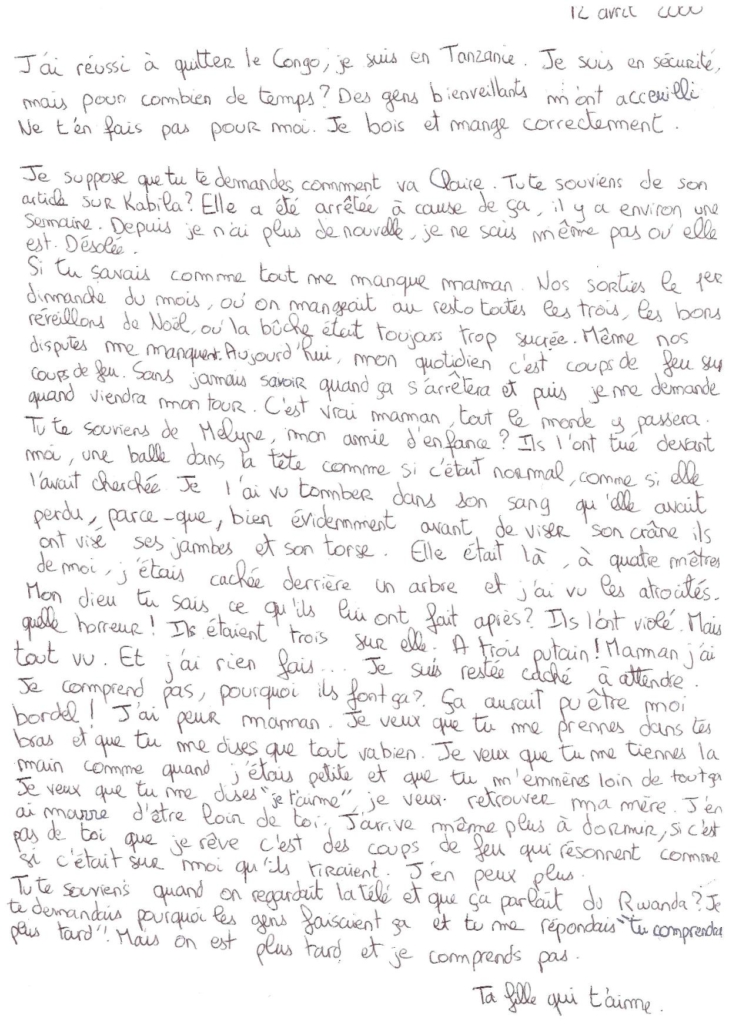 12 avril 2000
J'ai réussi à quitter le Congo, je suis en Tanzanie. Je suis en sécurité,
mais pour combien de temps? Des gens bienveillants m'ont acceuilli
Ne t'en fais pas pour moi. Je bois et mange correctement.
Je suppose que tu te demandes comment va Claire. Tu te souviens de son
article sur Kabila? Elle a été arrêtée à cause de ça, il y a environ une
semaine. Depuis je n'ai plus de nouvelle, je ne sais même pas où elle
est. Désolée.
Si tu savais comme tout me manque maman. Nos sorties le 1er
dimanche du mois, où on mangeait au resto toutes les trois, les bons
réveillons de Noël, où la bûche était toujours trop sucrée. Même nos
disputes me manquent. Aujourd'hui, mon quotidien c'est coups de feu sur
coups de feu. Sans jamais savoir quand ça s'arrêtera et puis je me demande
quand viendra mon tour. C'est vrai maman, tout le monde y passera.
Tu te souviens de Mélyne, mon amie d'enfance? Ils l'ont tué devant
moi, une balle dans la tête comme si c'était normal, comme si elle
l'avait cherchée Je l'ai vu tomber dans son sang qu'elle avait
perdu, parce-que, bien évidemment avant de viser son crâne ils
ont visé ses jambes et son torse. Elle était là, à quatre mètres
de moi, j'étais cachée derrière un arbre et j'ai vu les atrocités.
Mon dieu tu sais ce qu'ils lui ont fait après? Ils l'ont violé. Mais
quelle horreur! Ils étaient trois sur elle. A trois putain! Maman j'ai
tout vu. Et j'ai rien fais... Je suis restée caché à attendre.
Je comprend pas, pourquoi ils font ça? Ça aurait pu être moi
bordel! J'ai peur maman. Je veux que tu me prennes dans tes
bras et que tu me dises que tout va bien. Je veux que tu me tiennes la
main comme quand j'étais petite et que tu m'emmènes loin de tout ça
Je veux que tu me dises "je t'aime", je veux retrouver ma mère. J'en
ai marre d'être loin de toi. J'arrive même plus à dormir, si c'est
pas de toi que je rêve c'est des coups de feu qui résonnent comme
si c'était sur moi qu'ils tiraient. J'en peux plus.
Tu te souviens quand on regardait la télé et que ça parlait du Rwanda? Je
te demandais pourquoi les gens faisaient ça et tu me répondais "tu comprendras
plus tard"! Mais on est plus tard et je comprends pas.
Ta fille qui t'aime.